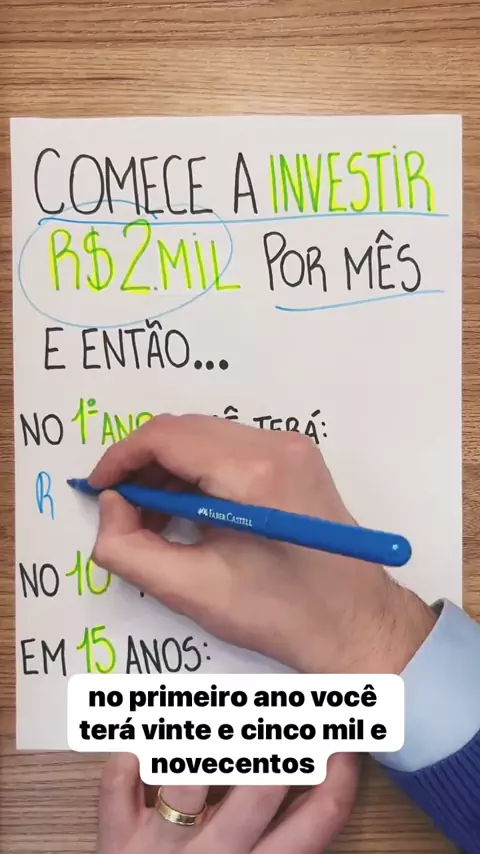 COMECE A INVESTIR
R$2.MIL POR MÊS
E ENTÃO...
NO 1º ANO TERÁ:
R
FABER CASTELL
NO 10
EM 15 ANOS:
no primeiro ano você
terá vinte e cinco mil e
novecentos